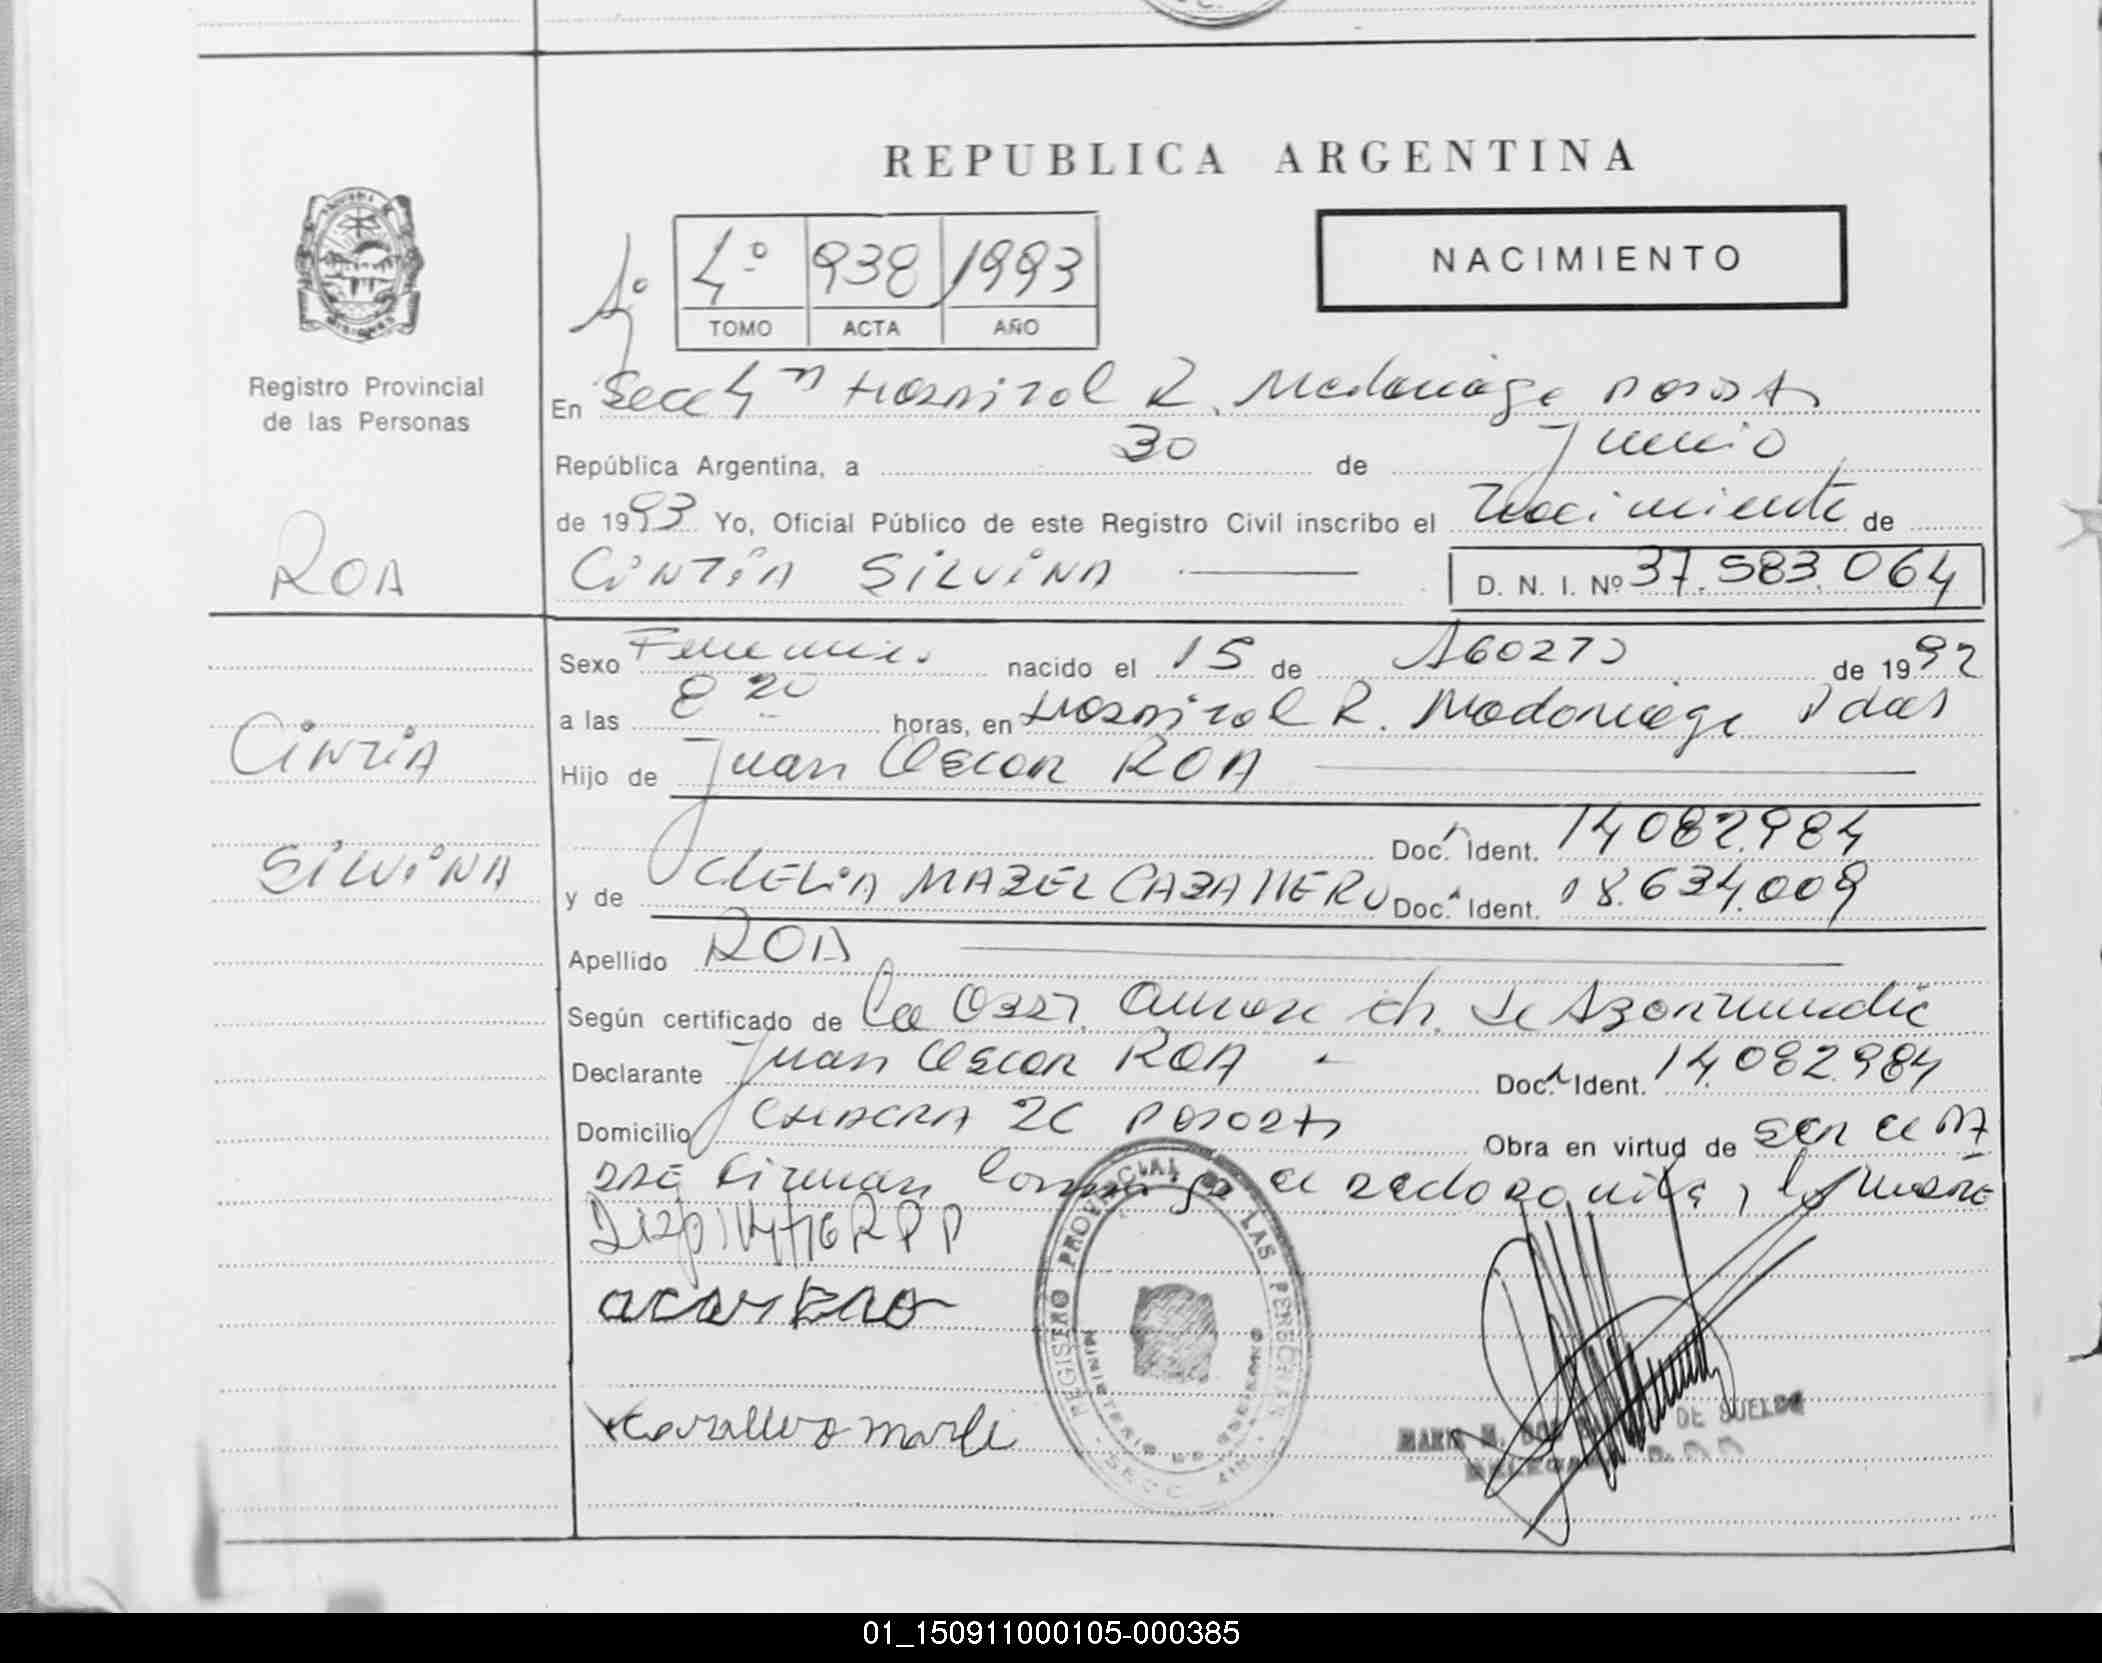 REPUBLICA ARGENTINA
NACIMIENTO
4º 938 1993
TOMO ACTA AÑO
Registro Provincial
de las Personas
En Secc 4ª Hospital R. Madariaga Posadas
República Argentina, a 30 de Junio
de 1993 Yo, Oficial Público de este Registro Civil inscribo el Nacimiento de
ROA
CINTIA SILVINA D. N. I. Nº 37.583.064
Sexo Femenino nacido el 15 de AGOSTO de 1992
a las 8 20 horas, en Hospital R. Madariaga Pdas
CINTIA
Hijo de Juan Oscar ROA
Doc. Ident. 14.082.984
SILVINA
y de CLELIA MABEL CABALLERO Doc. Ident. 18.634.009
Apellido ROA
Según certificado de la Obst. ch. de
Declarante Juan Oscar ROA Doc. Ident. 14.082.984
Domicilio CHACRA Obra en virtud de ser el
firman Conmigo el y la madre
Disp 114/76 RPP
REGISTRO PROVINCIAL DE LAS PERSONAS
MINISTERIO DE GOBIERNO
SECC
DE SUELDO
01_150911000105-000385